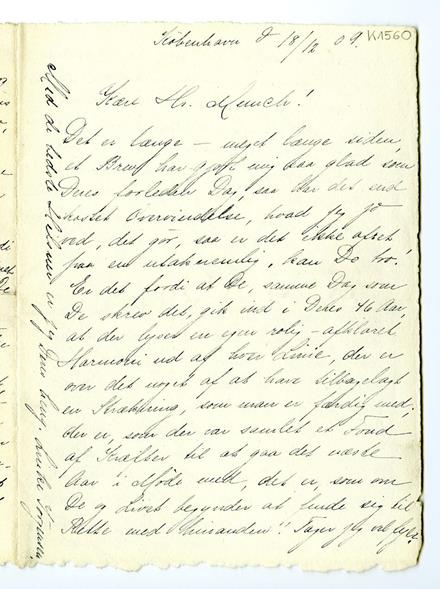 København d 18/12 09.
K1560
Kære Hr. Munch!
Det er længe – meget længe siden,
et Brev har gjort mig saa glad som
Deres forleden Dag, saa har det end
kostet Overvindelse, hvad jeg jo
ved, det gør, saa er det ikke ofret
paa en utaknemlig, kan De tro!
Er det fordi at De, samme Dag som
De skrev det, gik ind i Deres 46 Aar,
at der lyser en egen rolig – afklaret
Harmoni ud af hver Linie, der er
over det noget af at have tilbagelagt
en Strækning, som man er færdig med,
der er, som der var samlet et Fond
af Kræfter til at gaa det næste
Aar i Møde med, det er, som om
De og Livet begynder at finde sig til
Rette med hinanden!! Tager jeg vel fejl?
Med de bedste Hilsener er jeg Deres heng.